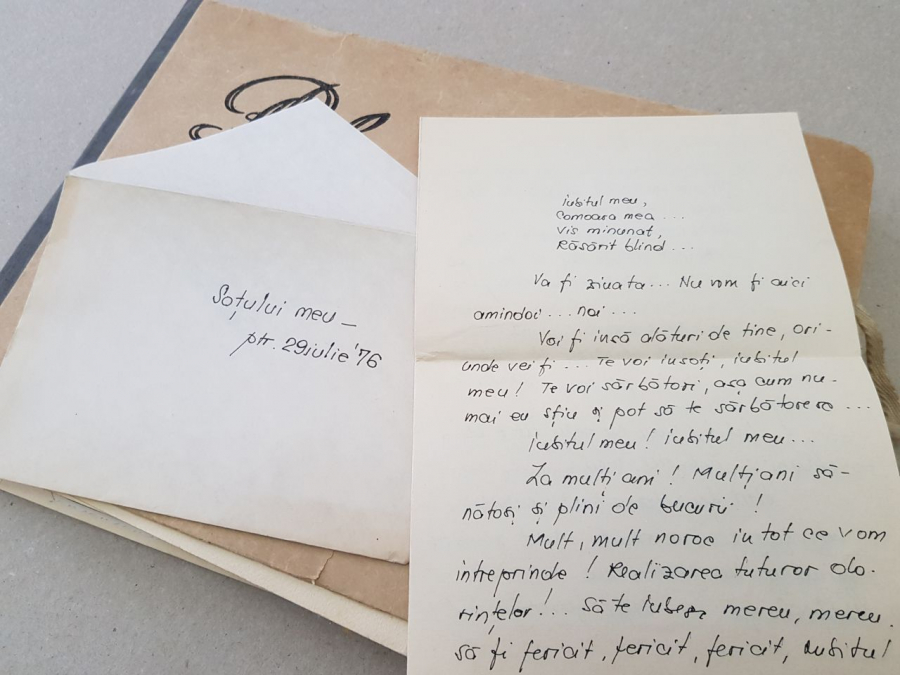 Soțului meu –
ptr. 29 iulie '76
iubitul meu,
comoara mea ...
vis minunat,
Răsărit blînd ...
Va fi ziua ta ... Nu vom fi aici
amîndoi ... noi ...
Voi fi însă alături de tine, ori-
unde vei fi ... Te voi însoți, iubitul
meu! Te voi sărbători, așa cum nu-
mai eu știu și pot să te sărbătoresc ...
iubitul meu! iubitul meu ...
La mulți ani! Mulți ani să-
nătoși și plini de bucurii!
Mult, mult noroc în tot ce vom
întreprinde! Realizarea tuturor do-
rințelor! .. Să te iubesc mereu, mereu.
să fi fericit, fericit, fericit, iubitul